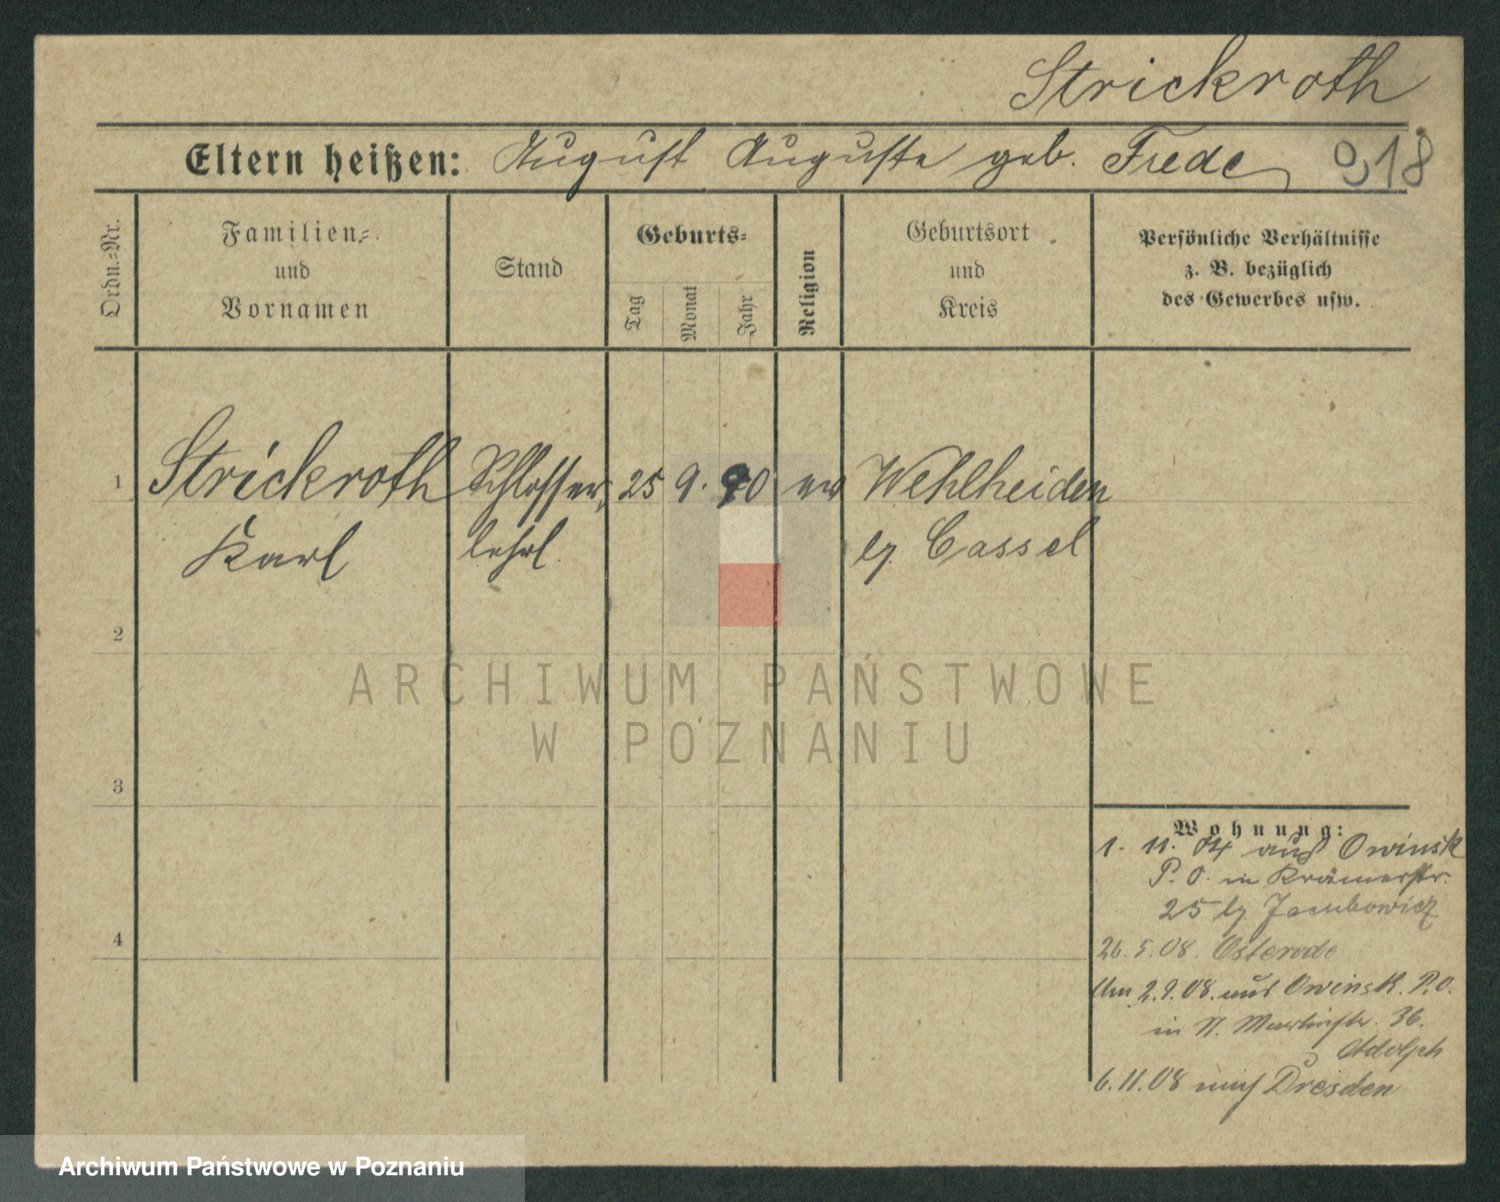 Strickroth
Eltern heißen: August Auguste geb. Frede
918
Ordn.-Nr.
Familien-
und
Vornamen
Stand
Geburts-
Tag
Monat
Jahr
Religion
Geburtsort
und
Kreis
Persönliche Verhältnisse
z. B. bezüglich
des Gewerbes usw.
1 Strickroth Schlosser- 25 9. 90 ev Wehlheiden
Karl lehrl. Cassel
2
3
4
ARCHIWUM PAŃSTWOWE
W POZNANIU
Wohnung:
1. 11. 04 aus Owinsk
P. O. in Krämerstr.
25 Jacubowicz
26. 5. 08. Osterode
2.9.08. aus Owinsk. P. O.
in St. Martinstr. 36.
Adolph
6.11.08 nach Dresden
Archiwum Państwowe w Poznaniu